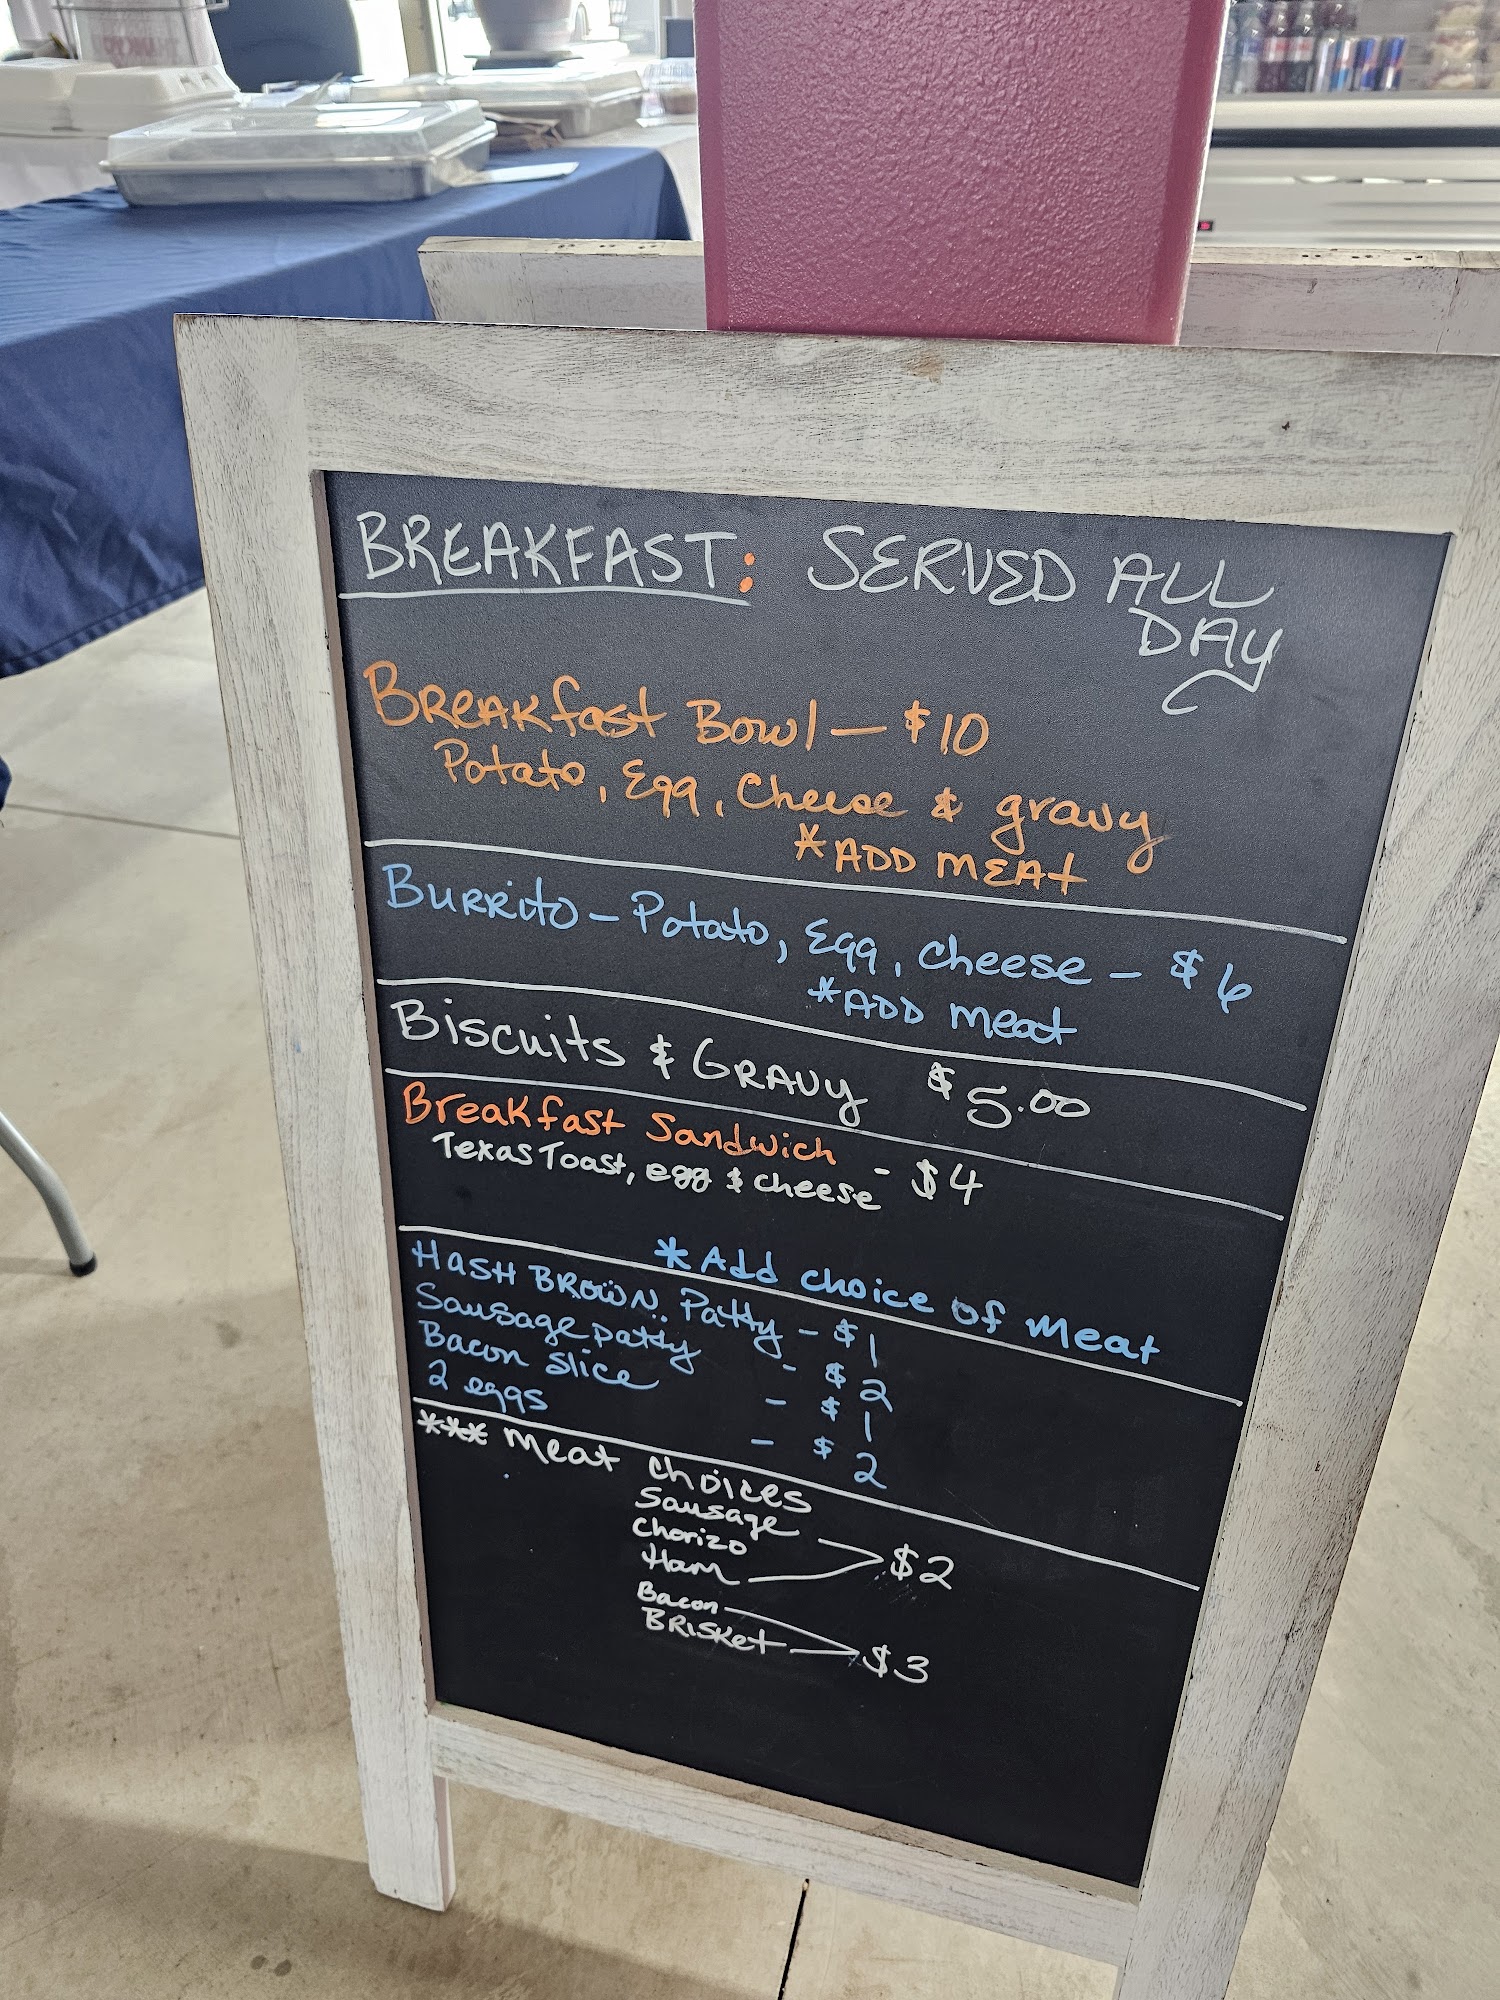 BREAKFAST: SERVED ALL
DAY
BREAKfast Bowl — $10
Potato, Egg, Cheese & gravy
*ADD MEAt
BURRito — Potato, Egg, cheese — $6
*ADD meat
Biscuits & GRAVY $5.00
Breakfast Sandwich - $4
Texas Toast, egg & cheese
*Add choice of meat
HASH BROWN Patty - $1
Sausage patty - $2
Bacon slice - $1
2 eggs - $2
*** meat choices
Sausage
Chorizo
Ham
$2
Bacon
BRisket
$3